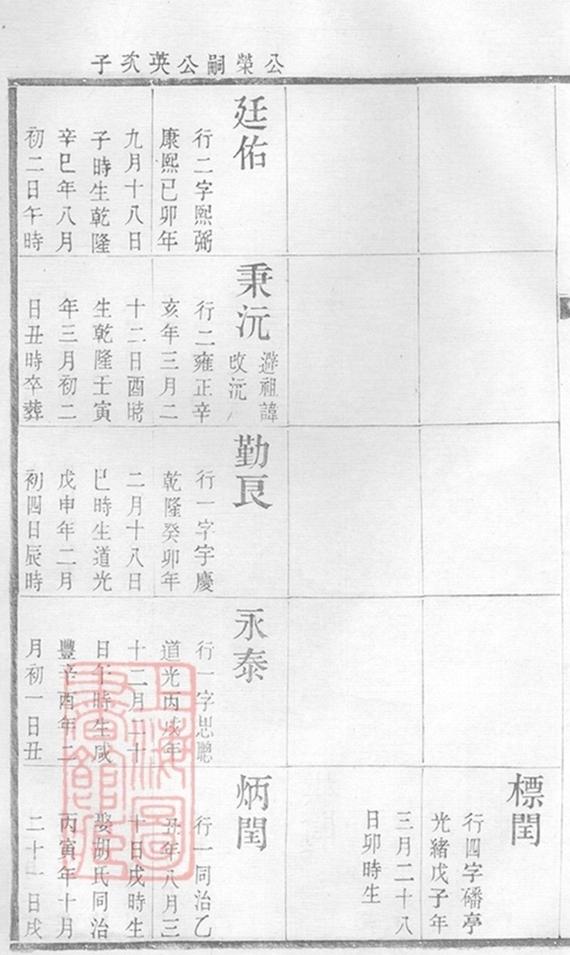 公榮嗣公英次子
廷佑
行二字熙弼
康熙已卯年
九月十八日
子時生乾隆
辛巳年八月
初二日午時
秉沅
避祖諱
改沅
行二雍正辛
亥年三月二
十二日酉時
生乾隆壬寅
年三月初二
日丑時卒葬
勤良
行一字字慶
乾隆癸卯年
二月十八日
巳時生道光
戊申年二月
初四日辰時
永泰
行一字思聰
道光丙戌年
十二月二十
日午時生咸
豐辛酉年二
月初一日丑
標閏
行四字磻亭
光緒戊子年
三月二十八
日卯時生
炳閏
行一同治乙
丑年八月三
十日戌時生
娶胡氏同治
丙寅年十月
二十一日戌
上海圖
書館藏